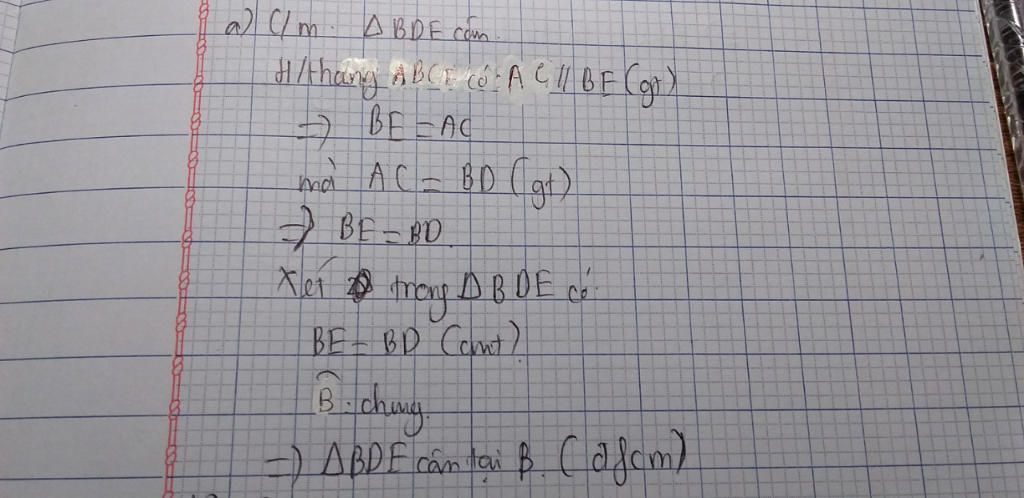 a) C/m: △BDE cân.
H/thang ABCE có: AC // BE (gt)
=> BE = AC
mà AC = BD (gt)
=> BE = BD
Xét trong △BDE có:
BE = BD (cmt)
B̂: chung.
=> △BDE cân tại B. (đfcm)